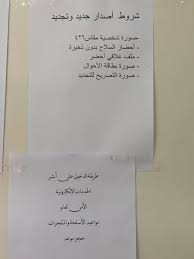 شروط أصدار جديد وتجديد
-صورة شخصية مقاس٤*٦
- أحضار السلاح بدون ذخيرة
- ملف علاقي أخضر
- صورة بطاقة الأحوال
- صورة التصريح للتجديد
طريقة الدخول على أبشر
الخدمات الالكترونية
الأمن العام
مواعيد الأسلحة والمتفجرات
حجز موعد